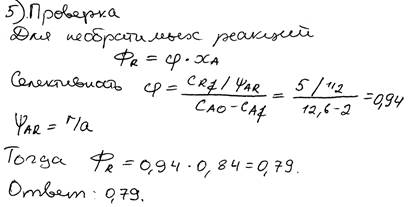 5). Проверка
Для необратимых реакций
Φ_R = φ · x_A
Селективность φ = (C_Rf / Ψ_AR) / (C_A0 – C_Af) = (5 / 1/2) / (12,6 – 2) = 0,94
Ψ_AR = r/a
Тогда Φ_R = 0,94 · 0,84 = 0,79.
Ответ: 0,79.